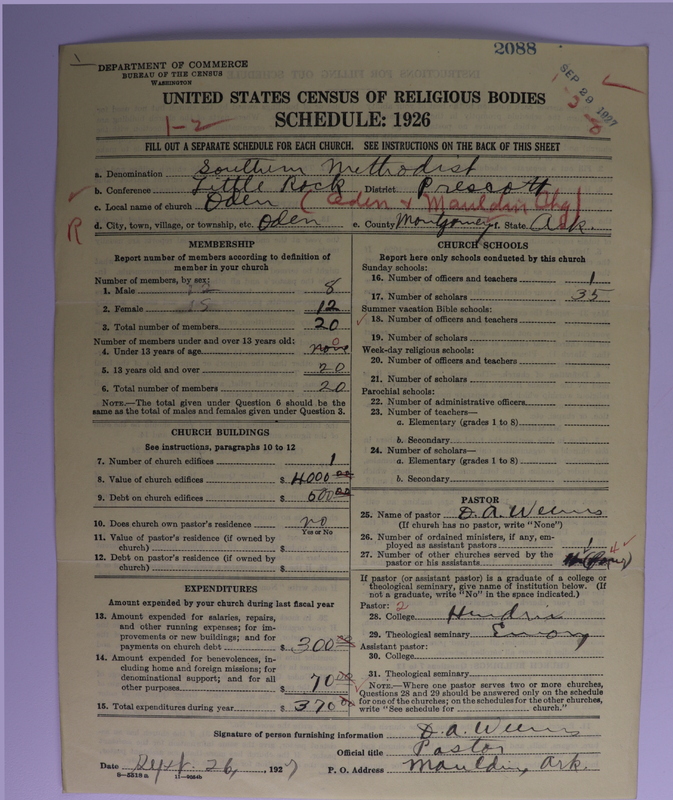 2088
DEPARTMENT OF COMMERCE
BUREAU OF THE CENSUS
WASHINGTON
SEP 29 1927
UNITED STATES CENSUS OF RELIGIOUS BODIES
1-2
SCHEDULE: 1926
FILL OUT A SEPARATE SCHEDULE FOR EACH CHURCH. SEE INSTRUCTIONS ON THE BACK OF THIS SHEET
a. Denomination Southern Methodist
b. Conference Little Rock District Prescott
c. Local name of church Oden (Oden & Mauldin Chg)
R
d. City, town, village, or township, etc. Oden e. County Montgomery f. State Ark.
MEMBERSHIP
Report number of members according to definition of
member in your church
Number of members, by sex:
1. Male 8
2. Female 12
3. Total number of members 20
Number of members under and over 13 years old:
4. Under 13 years of age none 0
5. 13 years old and over 20
6. Total number of members 20
NOTE.—The total given under Question 6 should be the
same as the total of males and females given under Question 3.
CHURCH BUILDINGS
See instructions, paragraphs 10 to 12
7. Number of church edifices 1
8. Value of church edifices $ 4000 00
9. Debt on church edifices $ 600 00
10. Does church own pastor's residence no
Yes or No
11. Value of pastor's residence (if owned by
church) $
12. Debt on pastor's residence (if owned by
church) $
EXPENDITURES
Amount expended by your church during last fiscal year
13. Amount expended for salaries, repairs,
and other running expenses; for im-
provements or new buildings; and for
payments on church debt $ 300 00
14. Amount expended for benevolences, in-
cluding home and foreign missions; for
denominational support; and for all
other purposes $ 70 00
15. Total expenditures during year $ 370 00
CHURCH SCHOOLS
Report here only schools conducted by this church
Sunday schools:
16. Number of officers and teachers 1
17. Number of scholars 35
Summer vacation Bible schools:
18. Number of officers and teachers
19. Number of scholars
Week-day religious schools:
20. Number of officers and teachers
21. Number of scholars
Parochial schools:
22. Number of administrative officers
23. Number of teachers—
a. Elementary (grades 1 to 8)
b. Secondary
24. Number of scholars—
a. Elementary (grades 1 to 8)
b. Secondary
PASTOR
25. Name of pastor D. A. Weems
(If church has no pastor, write "None")
26. Number of ordained ministers, if any, em-
ployed as assistant pastors
27. Number of other churches served by the
pastor or his assistants 4
If pastor (or assistant pastor) is a graduate of a college or
theological seminary, give name of institution below. (If
not a graduate, write "No" in the space indicated.)
Pastor: 2
28. College Hendrix
29. Theological seminary Emory
Assistant pastor:
30. College
31. Theological seminary
NOTE.—Where one pastor serves two or more churches,
Questions 28 and 29 should be answered only on the schedule
for one of the churches; on the schedules for the other churches,
write "See schedule for church."
Signature of person furnishing information D. A. Weems
Official title Pastor
Date Sept. 26, 1927 P. O. Address Mauldin, Ark.